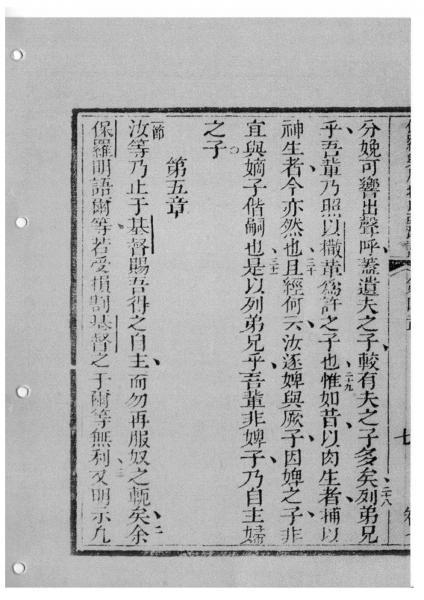 分娩可響出聲呼蓋遺夫之子較有夫之子多矣列弟兄
二十八
乎吾輩乃照以撒輩為許之子也惟如昔以肉生者捕以
二十九
神生者今亦然也且經何云汝逐婢與厥子因婢之子非
三十
宜與嫡子偕嗣也是以列弟兄乎吾輩非婢子乃自主婦
三十一
之子
第五章
一節
汝等乃止于基督賜吾得之自主而勿再服奴之軛矣余
二
保羅明語爾等若受損割基督之于爾等無利又明示凡
三